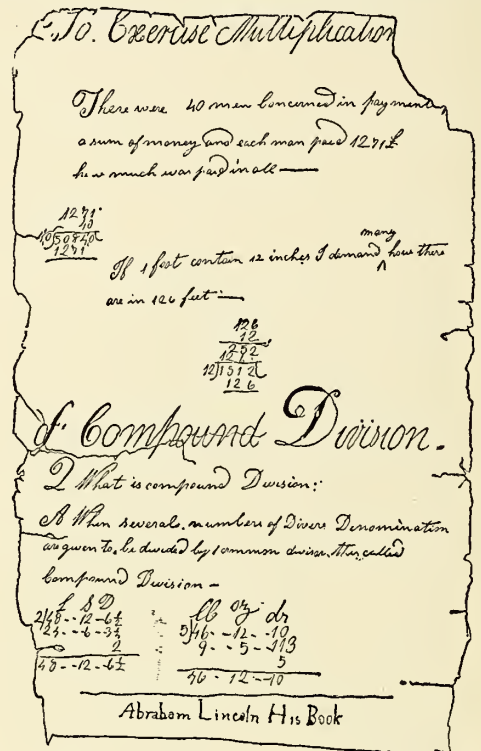 To Exercise Multiplication
There were 40 men Concerned in payment
a sum of money and each man paid 1271£
how much was paid in all —
1271
40
40)50840(
1271
many
If 1 foot contain 12 inches I demand ^ how there
are in 126 feet —
126
12
252
126
12)1512(
126
of Compound Division.
Q What is compound Division:
A When several numbers of Divers Denomination
are given to be divided by 1 common divisor this called
Compound Division —
£ S D
2)48--12-6½
24--6-3¼
2
48--12-6½
lb oz dr
5)46--12--10
9--5--113
5
46-12-10
Abraham Lincoln His Book